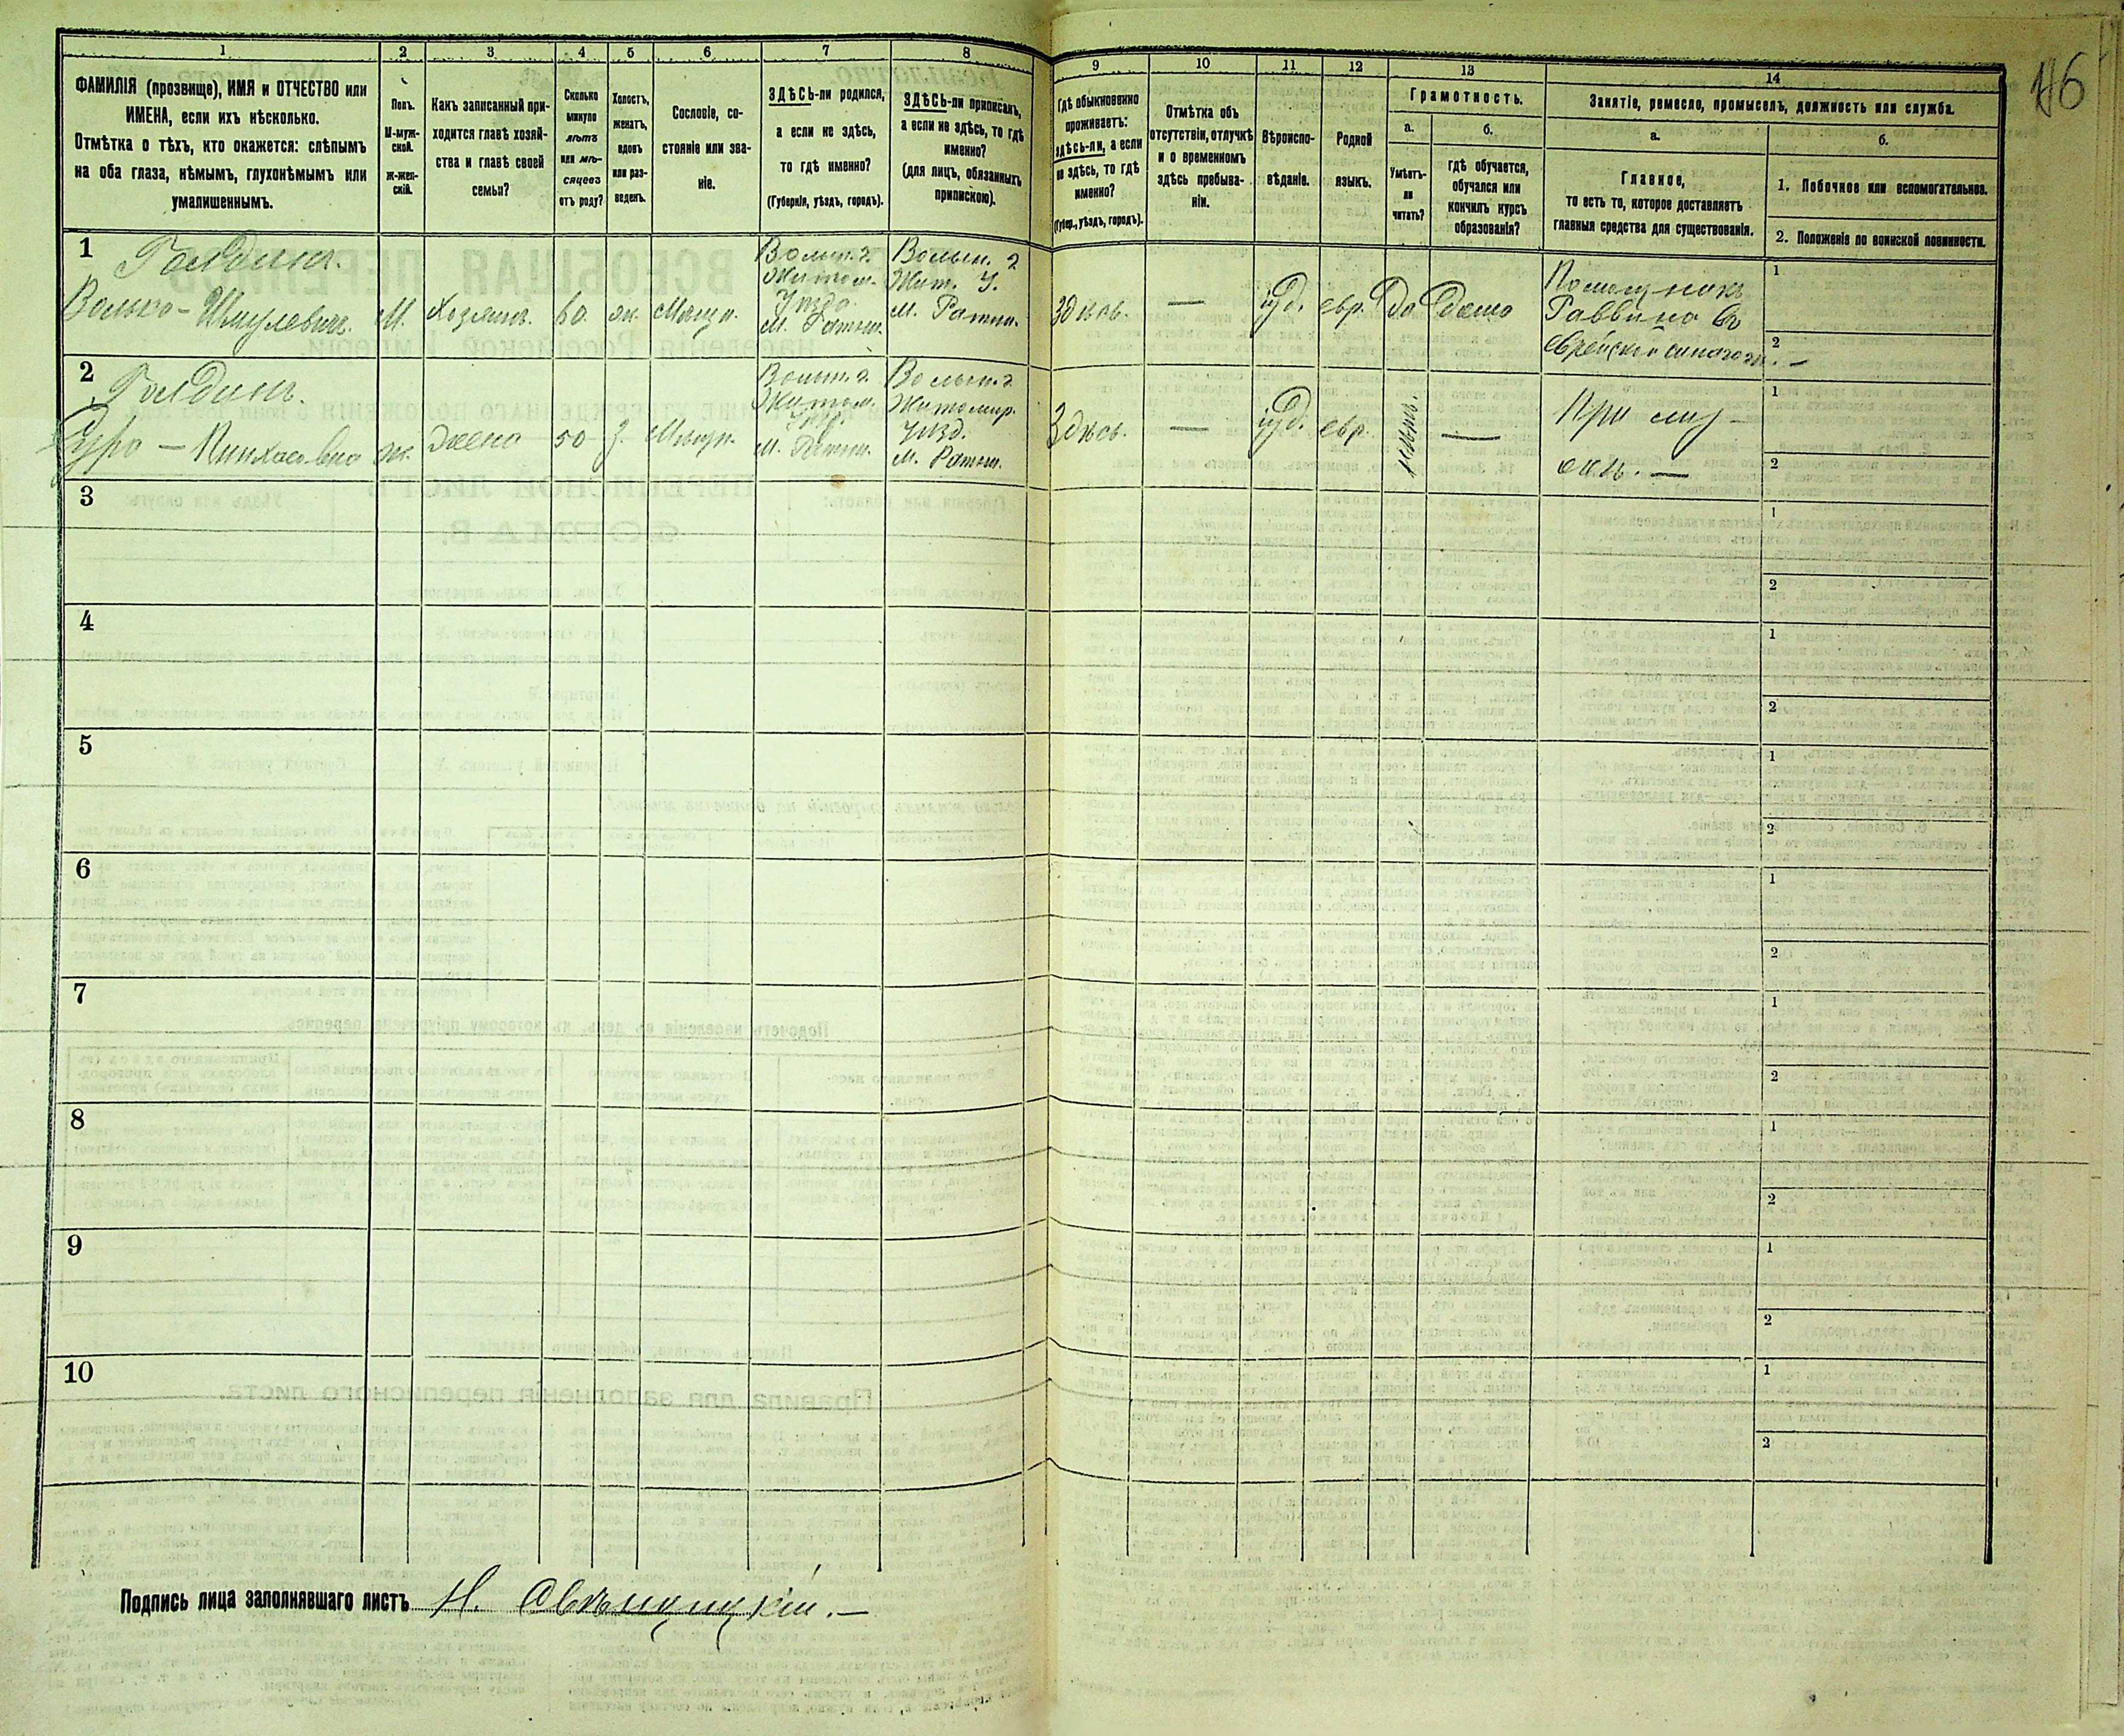 1 2 3 4 5 6 7 8 9 10 11 12 13 14
146
ФАМИЛІЯ (прозвище), ИМЯ и ОТЧЕСТВО или
ИМЕНА, если ихъ нѣсколько.
Отмѣтка о тѣхъ, кто окажется: слѣпымъ
на оба глаза, нѣмымъ, глухонѣмымъ или
умалишеннымъ.
Полъ.
М-муж-
ской.
Ж-жен-
скій.
Какъ записанный при-
ходится главѣ хозяй-
ства и главѣ своей
семьи?
Сколько
минуло
лѣтъ
или мѣ-
сяцевъ
отъ роду?
Холостъ,
женатъ,
вдовъ
или раз-
веденъ.
Сословіе, со-
стояніе или зва-
ніе.
ЗДѢСЬ-ли родился,
а если не здѣсь,
то гдѣ именно?
(Губернія, уѣздъ, городъ).
ЗДѢСЬ-ли приписанъ,
а если не здѣсь, то гдѣ
именно?
(для лицъ, обязанныхъ
припискою).
Гдѣ обыкновенно
проживаетъ:
здѣсь-ли, а если
не здѣсь, то гдѣ
именно?
(Губер., уѣздъ, городъ).
Отмѣтка объ
отсутствіи, отлучкѣ
и о временномъ
здѣсь пребыва-
ніи.
Вѣроиспо-
вѣданіе.
Родной
языкъ.
Грамотность.
а.
Умѣетъ-
ли
читать?
б.
Гдѣ обучается,
обучался или
кончилъ курсъ
образованія?
Занятіе, ремесло, промыселъ, должность или служба.
а.
Главное,
то есть то, которое доставляетъ
главныя средства для существованія.
б.
1. Побочное или вспомогательное.
2. Положеніе по воинской повинности.
1
Голдинъ.
Волько - Шмулевичъ.
М.
Хозяинъ.
60
жн.
Мѣщн.
Волын. г.
Житом.
Уѣзда
м.
Волын. г
Жит. У.
м.
здѣсь.
—
іуд.
евр.
да
дома
Помощникъ
Раввина въ
еврейской синагогѣ. —
1
2
2
Голдинъ.
Сура — Пинхасовна
ж.
жена
50
з.
Мѣщн.
Волын. г.
Житом.
Уѣзд.
м.
Волын. г
Житомир.
Уѣзд.
м.
Здѣсь.
—
іуд.
евр.
—
При муж-
1
2
3
1
2
4
1
2
5
1
2
6
1
2
7
1
2
8
1
2
9
1
2
10
1
2
Подпись лица заполнявшаго листъ Н.